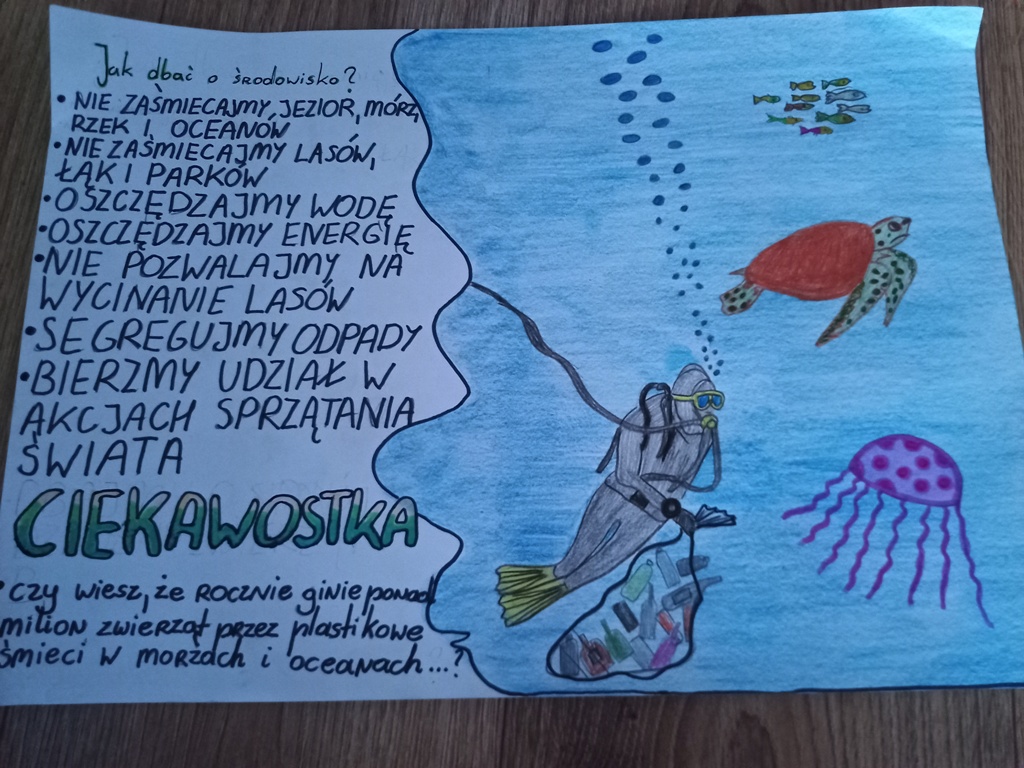 Jak dbać o środowisko?
• NIE ZAŚMIECAJMY, JEZIOR, MÓRZ,
RZEK I OCEANÓW
• NIE ZAŚMIECAJMY LASÓW,
ŁĄK I PARKÓW
• OSZCZĘDZAJMY WODĘ
• OSZCZĘDZAJMY ENERGIĘ
• NIE POZWALAJMY NA
WYCINANIE LASÓW
• SEGREGUJMY ODPADY
• BIERZMY UDZIAŁ W
AKCJACH SPRZĄTANIA
ŚWIATA
CIEKAWOSTKA
• Czy wiesz, że rocznie ginie ponad
milion zwierząt przez plastikowe
śmieci w morzach i oceanach...?